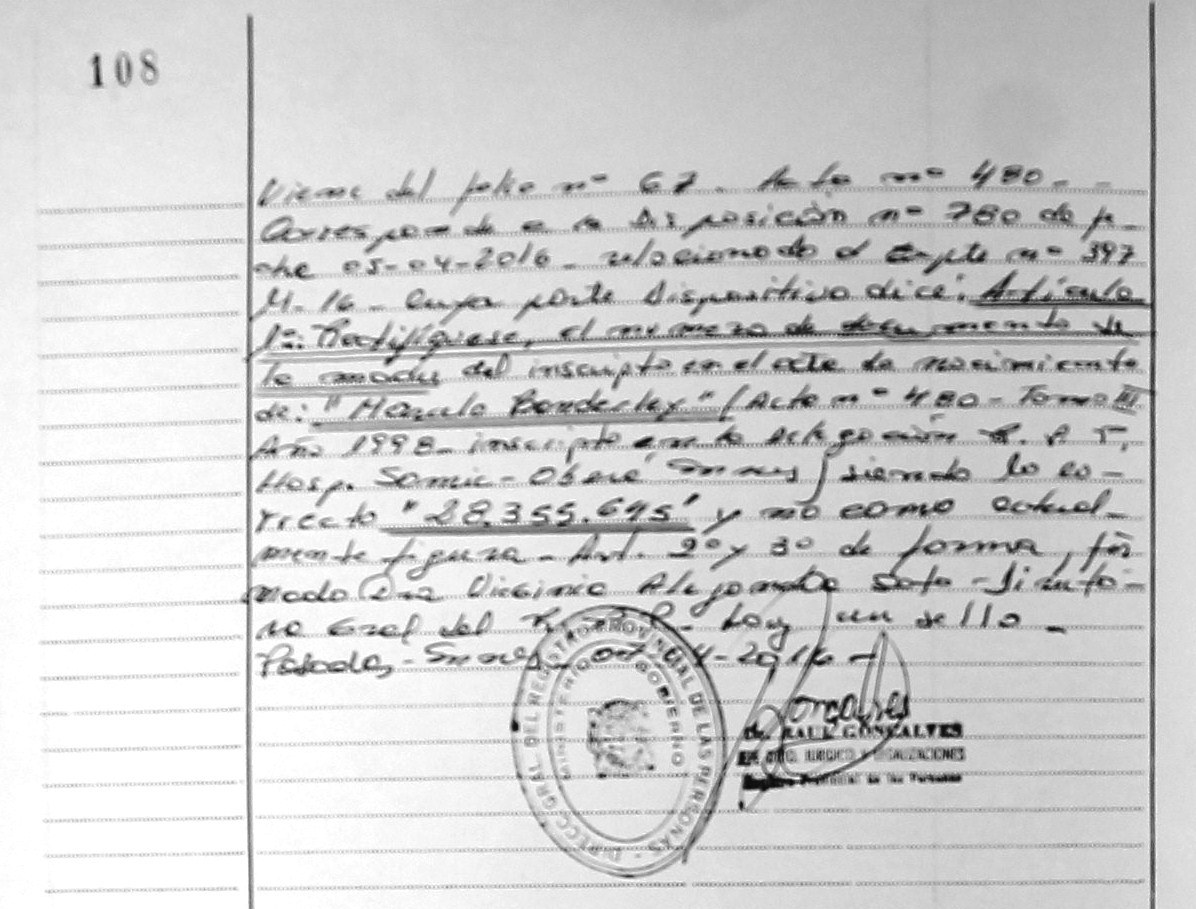 108
Viene del folio nº 67. Acta nº 480 - -
Corresponde a la Disposición nº 780 de fe-
cha 05-04-2016 - relacionado al Expte nº 397
M-16 - cuya parte dispositiva dice: Artículo
1º: Rectifíquese, el numero de documento de
la madre del inscripto en el acta de nacimiento
de: " " (Acta nº 480 - Tomo III
Año 1998 - inscripto en la delegación
Hosp. Samic - Oberá Smnes) siendo lo co-
rrecto "28.355.695" y no como actual-
mente figura - Art. 2º y 3º de forma, fir-
mado Dra Virginia Alejandra Soto -
Gral del hay un sello -
Posadas, - Smnes, -2016 -
DIRECC. GRAL. DEL REGISTRO PROVINCIAL DE LAS PERSONAS
MINISTERIO GOBIERNO
Gonçalves
RAUL GONÇALVES
JURIDICO Y LEGALIZACIONES
Registro Provincial de las Personas